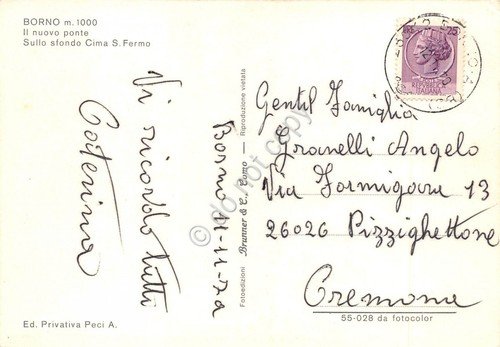 BORNO m. 1000
Il nuovo ponte
Sullo sfondo Cima S. Fermo
Vi ricordo tutti
Caterina
Borno 11-11-70
Fotoedizioni Brunner & C., Como — Riproduzione vietata
25
REPUBBLICA
ITALIANA
Gentil Famiglia
Granelli Angelo
Via Formigara 13
26026 Pizzighettone
Cremona
55-028 da fotocolor
Ed. Privativa Peci A.
do not copy